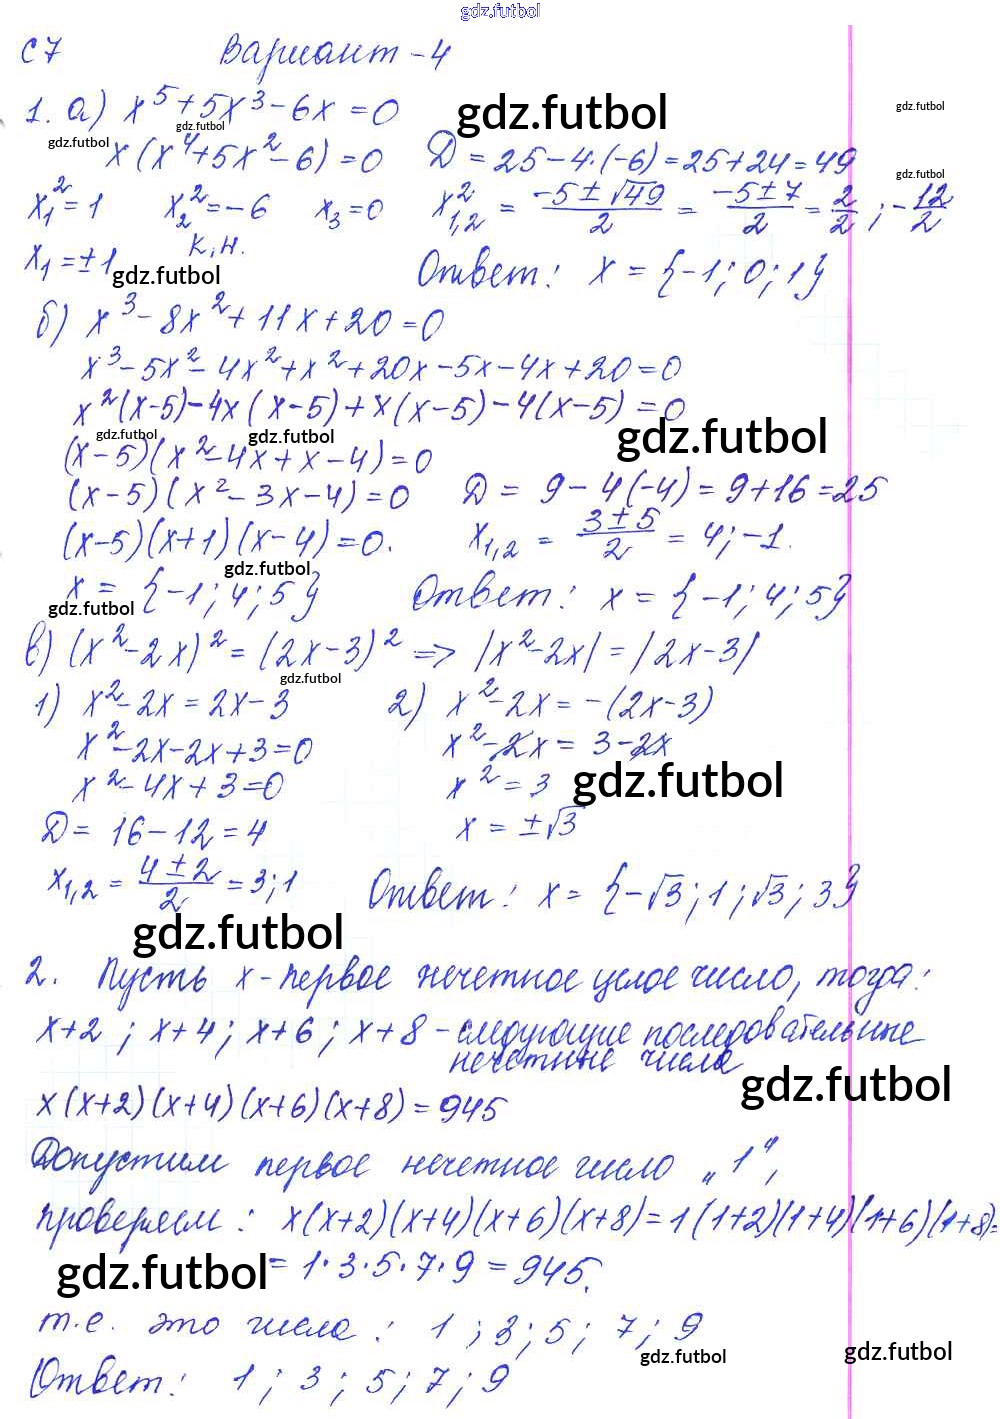 gdz.futbol
С7 Вариант-4
1. а) x⁵+5x³-6x=0
gdz.futbol
gdz.futbol
gdz.futbol
gdz.futbol
x(x⁴+5x²-6)=0 D=25-4·(-6)=25+24=49
gdz.futbol
x₁²=1 x₂²=-6 x₃=0 x²₁,₂ = (-5±√49)/2 = (-5±7)/2 = 2/2; -12/2
к.н.
x₁=±1 Ответ: x={-1; 0; 1}
gdz.futbol
б) x³-8x²+11x+20=0
x³-5x²-4x²+x²+20x-5x-4x+20=0
x²(x-5)-4x(x-5)+x(x-5)-4(x-5)=0
gdz.futbol
gdz.futbol
gdz.futbol
(x-5)(x²-4x+x-4)=0
(x-5)(x²-3x-4)=0 D=9-4(-4)=9+16=25
(x-5)(x+1)(x-4)=0. x₁,₂ = (3±5)/2 = 4; -1.
gdz.futbol
x={-1; 4; 5} Ответ: x={-1; 4; 5}
gdz.futbol
в) (x²-2x)²=(2x-3)² => |x²-2x|=|2x-3|
gdz.futbol
1) x²-2x=2x-3 2) x²-2x=-(2x-3)
x²-2x-2x+3=0 x²-2x=3-2x
x²-4x+3=0 x²=3
gdz.futbol
D=16-12=4 x=±√3
x₁,₂=(4±2)/2=3; 1 Ответ: x={-√3; 1; √3; 3}
gdz.futbol
2. Пусть x-первое нечетное целое число, тогда:
x+2; x+4; x+6; x+8 - следующие последовательные
нечетные числа
gdz.futbol
x(x+2)(x+4)(x+6)(x+8)=945
Допустим первое нечетное число „1",
проверяем: x(x+2)(x+4)(x+6)(x+8)=1(1+2)(1+4)(1+6)(1+8)=
gdz.futbol
=1·3·5·7·9=945.
т.е. это числа: 1; 3; 5; 7; 9
gdz.futbol
gdz.futbol
Ответ: 1; 3; 5; 7; 9